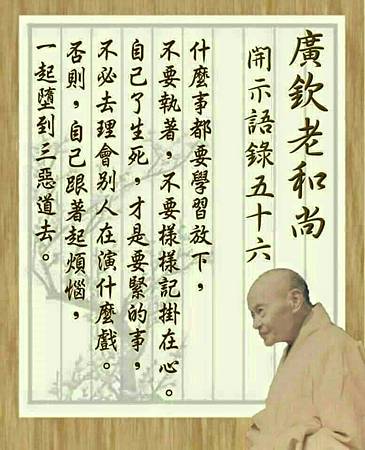 廣欽老和尚
開示語錄五十六
什麼事都要學習放下，
不要執著，不要樣樣記掛在心。
自己了生死，才是要緊的事，
不必去理會別人在演什麼戲。
否則，自己跟著起煩惱，
一起墮到三惡道去。